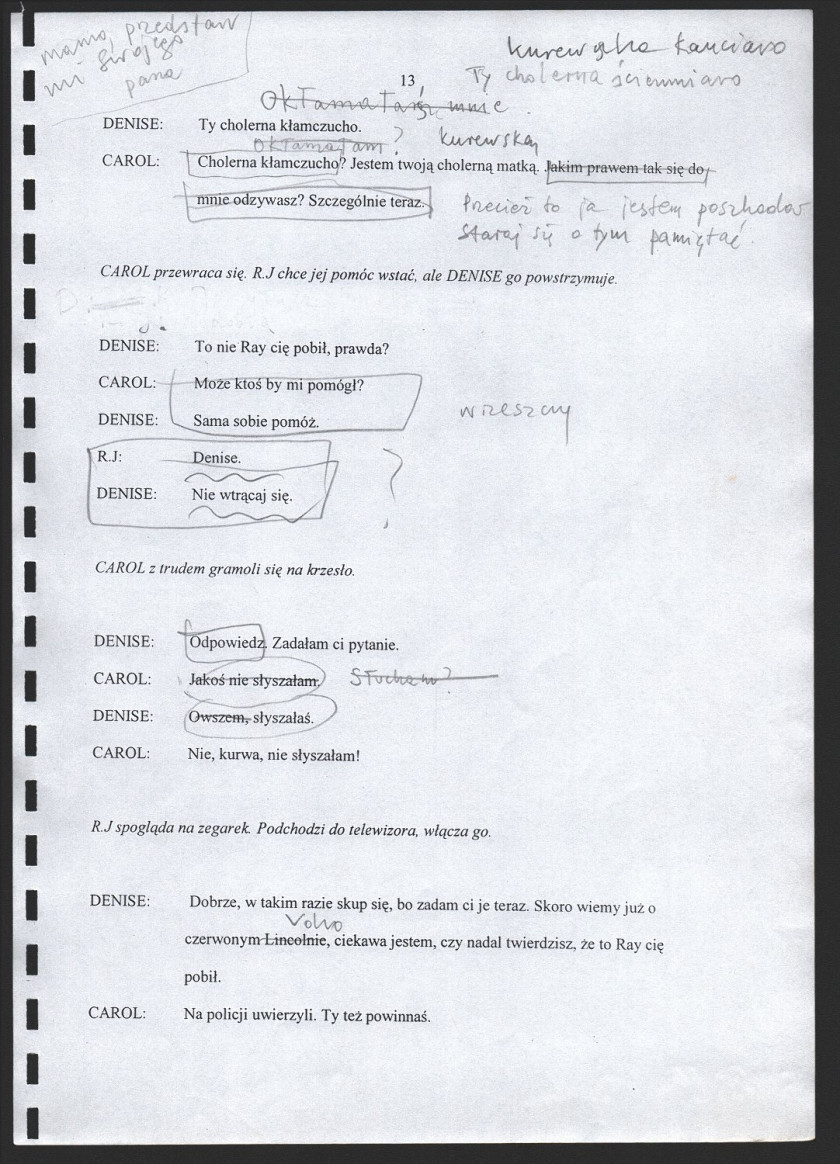 mamo, przedstaw
mi swojego
pana
13
Ty cholerna ściemniaro
Okłamałaś mnie.
DENISE: Ty cholerna kłamczucho.
okłamałam? kurewską
CAROL: Cholerna kłamczucho? Jestem twoją cholerną matką. Jakim prawem tak się do
mnie odzywasz? Szczególnie teraz.
Przecież to ja jestem
staraj się o tym pamiętać.
CAROL przewraca się. R.J chce jej pomóc wstać, ale DENISE go powstrzymuje.
DENISE: To nie Ray cię pobił, prawda?
CAROL: Może ktoś by mi pomógł?
wrzeszczy
DENISE: Sama sobie pomóż.
R.J: Denise.
?
DENISE: Nie wtrącaj się.
CAROL z trudem gramoli się na krzesło.
DENISE: Odpowiedz. Zadałam ci pytanie.
CAROL: Jakoś nie słyszałam. Słucham?
DENISE: Owszem, słyszałaś.
CAROL: Nie, kurwa, nie słyszałam!
R.J spogląda na zegarek. Podchodzi do telewizora, włącza go.
DENISE: Dobrze, w takim razie skup się, bo zadam ci je teraz. Skoro wiemy już o
Volvo
czerwonym Lincolnie, ciekawa jestem, czy nadal twierdzisz, że to Ray cię
pobił.
CAROL: Na policji uwierzyli. Ty też powinnaś.